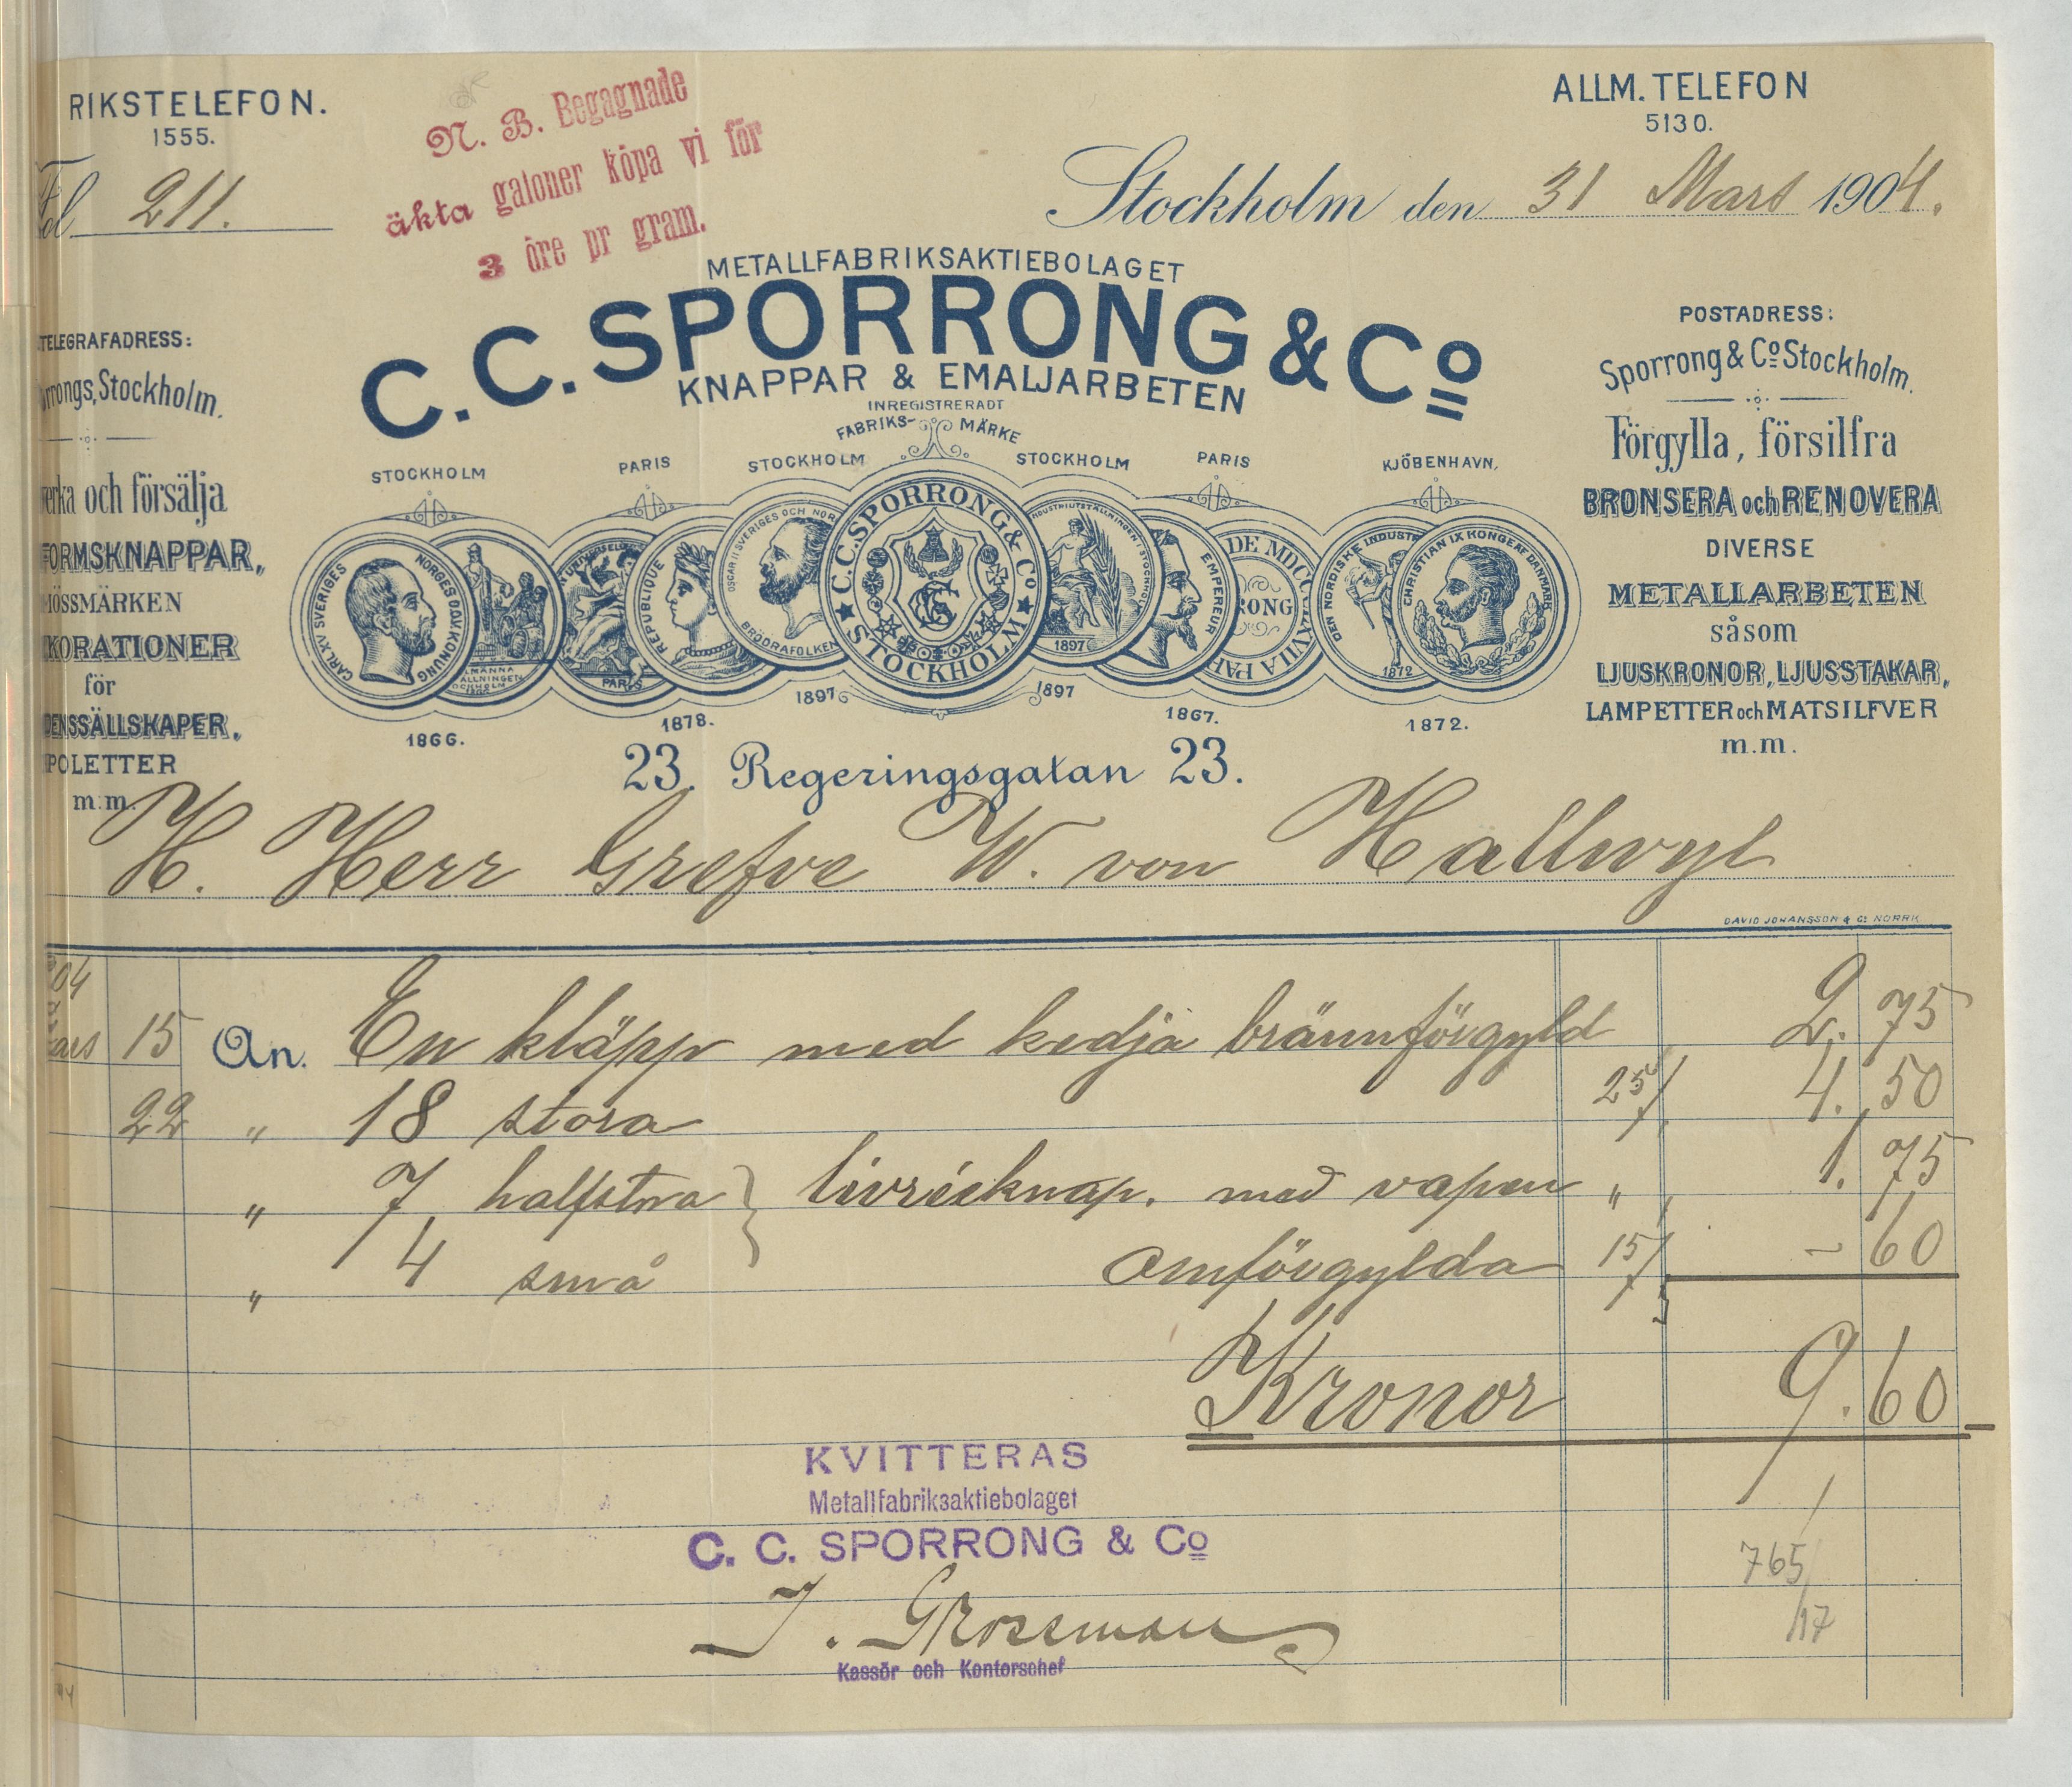 RIKSTELEFON.
1555.
Fol 211.
N. B. Begagnade
äkta galoner köpa vi för
3 öre pr gram.
ALLM. TELEFON
5130.
Stockholm den 31 Mars 1904.
METALLFABRIKSAKTIEBOLAGET
C. C. SPORRONG & Co
KNAPPAR & EMALJARBETEN
INREGISTRERADT
FABRIKS- MÄRKE
TELEGRAFADRESS:
rrongs, Stockholm.
verka och försälja
FORMSKNAPPAR,
MÖSSMÄRKEN
KORATIONER
för
DENSSÄLLSKAPER,
POLETTER
m.m.
POSTADRESS:
Sporrong & Co Stockholm.
Förgylla, försilfra
BRONSERA och RENOVERA
DIVERSE
METALLARBETEN
såsom
LJUSKRONOR, LJUSSTAKAR,
LAMPETTER och MATSILFVER
m.m.
STOCKHOLM PARIS STOCKHOLM STOCKHOLM PARIS KJÖBENHAVN.
CARL XV SVERIGES NORGES GÖT. O. VEND. KONUNG
PARIS
REPUBLIQUE
OSCAR II SVERIGES OCH NOR
BRÖDRAFOLKEN
C. C. SPORRONG & Co
STOCKHOLM
1897
EMPEREUR
RONG
DEN NORDISKE INDUSTR
1872
CHRISTIAN IX KONGE AF DANMARK
1866. 1878. 1897 1897 1867. 1872.
23. Regeringsgatan 23.
H. Herr Grefve W. von Hallwyl
DAVID JOHANSSON & Co NORRK.
04
ars 15 An. En kläpp med kedja brännförgyld 2. 75
22 " 18 stora 25/ 4. 50
" 7 halfstora } livréeknap. med vapen " 1. 75
" 4 små omförgylda 15/ - 60
Kronor 9. 60
KVITTERAS
Metallfabriksaktiebolaget
C. C. SPORRONG & Co
J. Grossman
Kassör och Kontorschef
765/
17